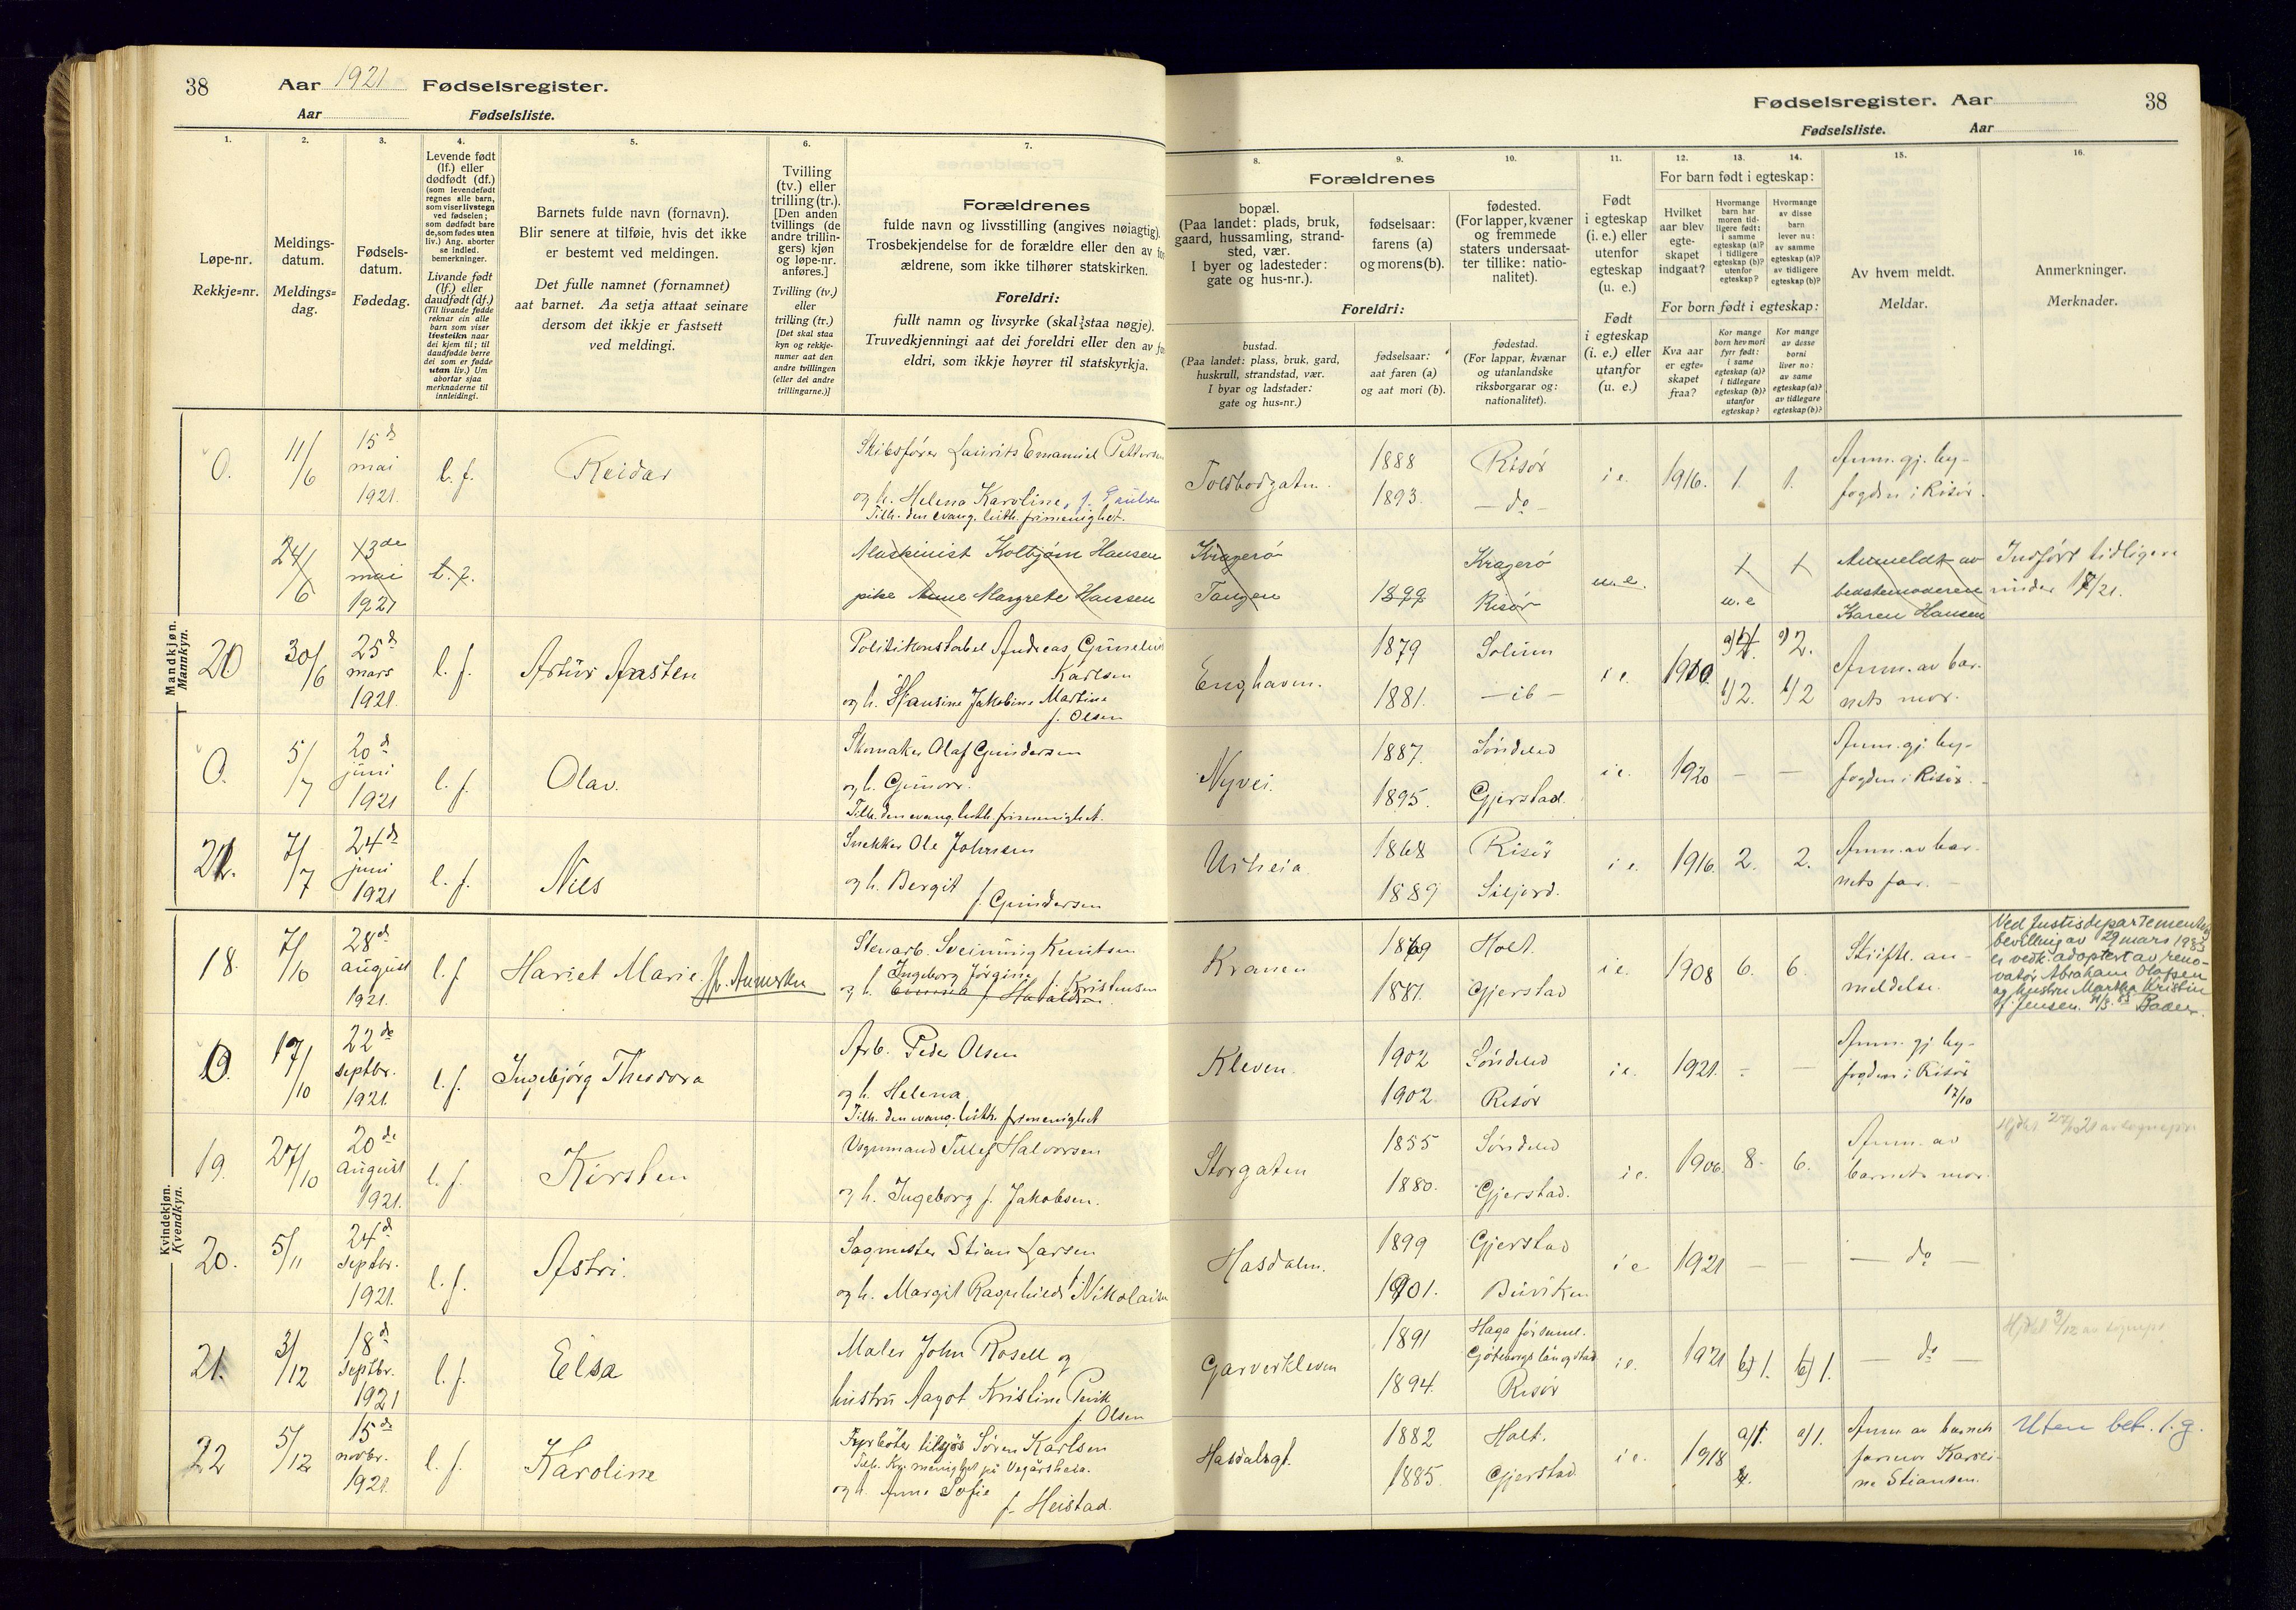 38 Aar 1921 Fødselsregister.
Aar Fødselsliste.
Fødselsregister. Aar 38
Fødselsliste. Aar
1. 2. 3. 4. 5. 6. 7. 8. 9. 10. 11. 12. 13. 14. 15. 16.
Løpe-nr.
Rekkje=nr.
Meldings-
datum.
Meldings=
dag.
Fødsels-
datum.
Fødedag.
Levende født
(lf.) eller
dødfødt (df.)
(som levendefødt
regnes alle barn,
som viser livstegn
ved fødselen;
som dødfødt bare
de, som fødes uten
liv.) Ang. aborter
se indled.
bemerkninger.
Livande født
(lf.) eller
daudfødt (df.)
(Til livande fødde
reknar ein alle
barn som viser
livsteikn naar
dei kjem til; til
daudfødde berre
dei som er fødde
utan liv.) Um
abortar sjaa
merknaderne til
innleidingi.
Barnets fulde navn (fornavn).
Blir senere at tilføie, hvis det ikke
er bestemt ved meldingen.
Det fulle namnet (fornamnet)
aat barnet. Aa setja attaat seinare
dersom det ikkje er fastsett
ved meldingi.
Tvilling
(tv.) eller
trilling (tr.).
[Den anden
tvillings (de
andre trillin-
gers) kjøn
og løpe-nr.
anføres.]
Tvilling (tv.)
eller
trilling (tr.)
[Det skal staa
kyn og rekkje-
numer aat den
andre tvillingen
(eller dei andre
trillingarne.)]
Forældrenes
fulde navn og livsstilling (angives nøiagtig).
Trosbekjendelse for de forældre eller den av for-
ældrene, som ikke tilhører statskirken.
Foreldri:
fullt namn og livsyrke (skal staa nøgje).
Truvedkjenningi aat dei foreldri eller den av for-
eldri, som ikkje høyrer til statskyrkja.
Forældrenes
bopæl.
(Paa landet: plads, bruk,
gaard, hussamling, strand-
sted, vær.
I byer og ladesteder:
gate og hus-nr.).
fødselsaar:
farens (a)
og morens (b).
fødested.
(For lapper, kvæner
og fremmede
staters undersaat-
ter tillike: natio-
nalitet).
Foreldri:
bustad.
(Paa landet: plass, bruk, gard,
huskrull, strandstad, vær.
I byar og ladstader:
gate og hus=nr.)
fødselsaar:
aat faren (a)
og aat mori (b).
fødestad.
(For lappar, kvænar
og utanlandske
riksborgarar og:
nationalitet).
Født
i egteskap
(i. e.) eller
utenfor
egteskap
(u. e.)
Født
i egteskap
(i. e.) eller
utanfor
(u. e.)
For barn født i egteskap:
Hvilket
aar blev
egte-
skapet
indgaat?
Hvormange
barn har
moren tid-
ligere født:
i samme
egteskap (a)?
i tidligere
egteskap (b)?
utenfor
egteskap?
Hvormange
av disse
barn
lever nu:
av samme
egteskap (a)?
av tidligere
egteskap (b)?
For born født i egteskap:
Kva aar
er egte=
skapet
fraa?
Kor mange
born hev mori
fyrr født:
i same
egteskap (a)?
i tidlegare
egteskap (b)?
utanfor
egteskap?
Kor mange
av desse
borni
liver no:
av same
egteskap (a)?
av tidlegare
egteskap (b)?
Av hvem meldt.
Meldar.
Anmerkninger.
Merknader.
Mandkjøn.
Mannkyn.
0. 11/6 15d mai 1921. l. f. Reidar
Skibsfører Laurits Emanuel Pettersen
og h. Helena Karoline, f. Paulsen
Tilh. den evang. luth. frimenighet.
Toldbodgaten. 1888 Risør
1893. — do — i e. 1916. 1. 1.
Anm. gj. by-
fogden i Risør.
24/6 13de mai 1921 l. f.
Maskinist Kolbjørn Hansen
pike Anne Margrete Hanssen
Kragerø Kragerø
Tangen 1899 Risør u. e. u. e
Anmeldt av
bedstemoderen
Karen Hansen
Indført tidligere
under 17/21.
20 30/6 25d mars 1921. l. f. Artur Aasten
Politikonstabel Andreas Gunelius
Karlsen
og h. Hansine Jakobine Martine
f. Olsen
Enghaven. 1879 Solum
1881. — ib — i e. 1900 a) 4. a) 2.
b) 2. b) 2
Anm. av bar-
nets mor.
0. 5/7 20d juni 1921 l. f. Olav.
Skomaker Olaf Gundersen
og h. Gunvor.
Tilh. den evang. luth. frimenighet.
Nyvei. 1887. Søndeled
1895. Gjerstad. i e. 1920 — —
Anm. gj. by-
fogden i Risør.
21. 7/7 24d juni 1921 l. f. Nils
Snekker Ole Johnsen
og h. Bergit
f. Gundersen
Urheia 1868 Risør
1889 Siljord. i e. 1916. 2. 2.
Anm. av bar-
nets far.
Kvindekjøn.
Kvendkyn.
18. 7/10 28d august 1921. l. f. Hariet Marie. Se Anmerkn
Stenarb. Sveinung Knutsen
og h. Ingeborg Jørgine f. Kristensen
Emma f. Haraldsen
Kranen 1869 Holt.
1881. Gjerstad i e. 1908 6. 6.
Skriftl. an-
meldelse.
Ved Justisdepartementets
bevilling av 29 mars 1983
er vedk. adoptert av reno-
vatør Abraham Olafsen
og hustru Martha Kristin
f. Jensen.
0. 17/10 22de septbr. 1921. l. f. Ingebjørg Theodora
Arb. Peder Olsen
og h. Helena
Tilh. den evang. luth. frimenighet
Kleven. 1902 Søndeled
1902. Risør i e. 1921. — —
Anm. gj. by-
fogden i Risør
17/10
19. 27/10 20de august 1921. l. f. Kirsten
Vognmand Tellef Halvorsen
og h. Ingeborg f. Jakobsen.
Storgaten 1855 Søndeled
1880. Gjerstad. i e. 1906. 8. 6.
Anm. av
barnets mor.
20. 5/11 24d septbr. 1921. l. f. Astri.
Sagmester Stian Larsen
og h. Margit Ragnhild f. Nikolaisen
Hasdalen. 1899 Gjerstad
1901. Buviken i e 1921 — —
— do —
21. 3/12 18d septbr. 1921 l. f. Elsa
Maler John Rosell og
hustru Aagot Kristine Penik
f. Olsen
Garverkleven 1891 Haga församl.
Göteborgs län og stad
1894. Risør i e. 1921 b) 1. b) 1.
— do —
22 5/12 15de novbr. 1921. l. f. Karoline
Fyrbøter tilsjøs Søren Karlsen
og h. Anne Sofie
f. Heistad.
Hasdalsgt. 1882 Holt.
1885. Gjerstad i e. 1918 a) 1. a) 1.
Anm av barnets
farmor Karoli-
ne Stiansen.
Uten bet. l. g.